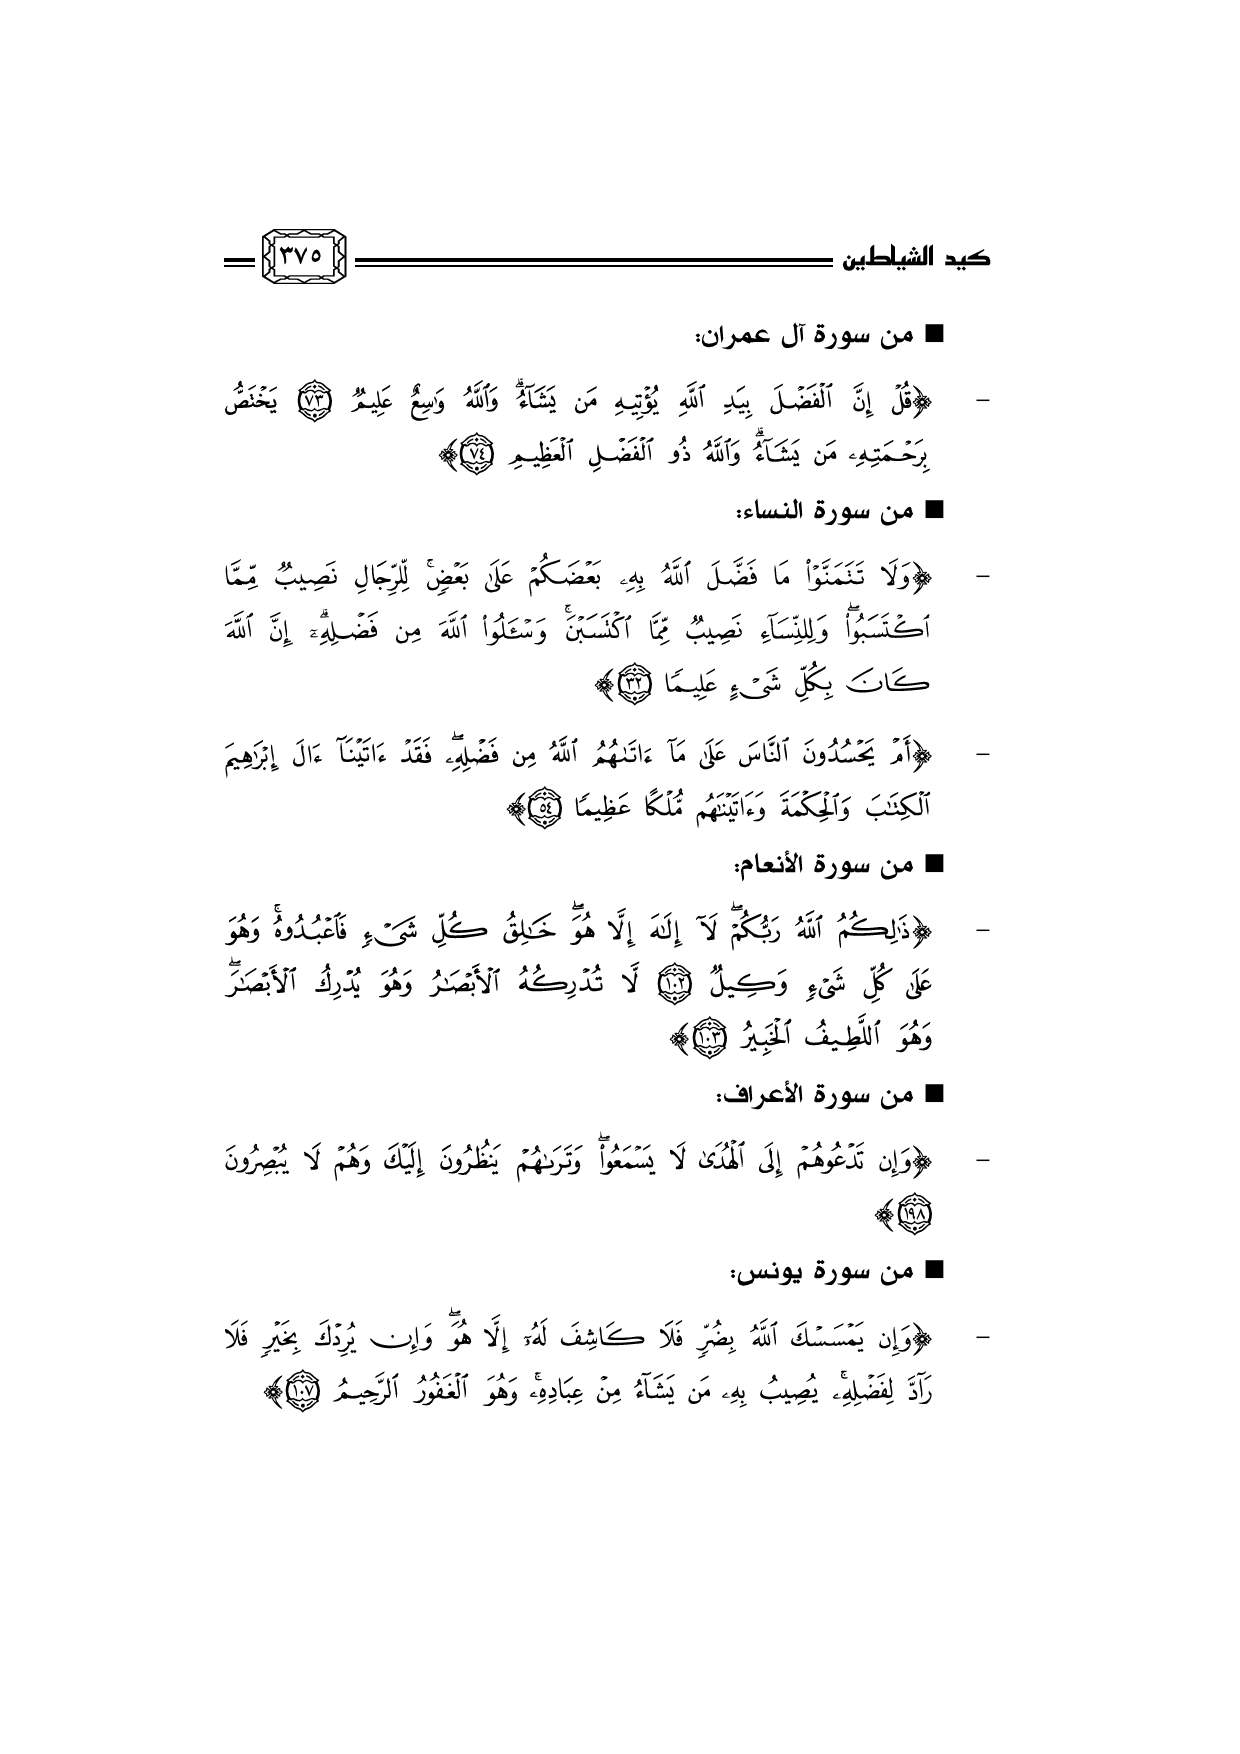 كيد الشياطين ٣٧٥
■ من سورة آل عمران:
– ﴿قُلْ إِنَّ ٱلْفَضْلَ بِيَدِ ٱللَّهِ يُؤْتِيهِ مَن يَشَآءُ ۗ وَٱللَّهُ وَٰسِعٌ عَلِيمٌ ٧٣ يَخْتَصُّ
بِرَحْمَتِهِۦ مَن يَشَآءُ ۗ وَٱللَّهُ ذُو ٱلْفَضْلِ ٱلْعَظِيمِ ٧٤﴾
■ من سورة النساء:
– ﴿وَلَا تَتَمَنَّوْا۟ مَا فَضَّلَ ٱللَّهُ بِهِۦ بَعْضَكُمْ عَلَىٰ بَعْضٍ ۚ لِّلرِّجَالِ نَصِيبٌ مِّمَّا
ٱكْتَسَبُوا۟ ۖ وَلِلنِّسَآءِ نَصِيبٌ مِّمَّا ٱكْتَسَبْنَ ۚ وَسْـَٔلُوا۟ ٱللَّهَ مِن فَضْلِهِۦٓ ۗ إِنَّ ٱللَّهَ
كَانَ بِكُلِّ شَىْءٍ عَلِيمًا ٣٢﴾
– ﴿أَمْ يَحْسُدُونَ ٱلنَّاسَ عَلَىٰ مَآ ءَاتَىٰهُمُ ٱللَّهُ مِن فَضْلِهِۦ ۖ فَقَدْ ءَاتَيْنَآ ءَالَ إِبْرَٰهِيمَ
ٱلْكِتَٰبَ وَٱلْحِكْمَةَ وَءَاتَيْنَٰهُم مُّلْكًا عَظِيمًا ٥٤﴾
■ من سورة الأنعام:
– ﴿ذَٰلِكُمُ ٱللَّهُ رَبُّكُمْ ۖ لَآ إِلَٰهَ إِلَّا هُوَ ۖ خَٰلِقُ كُلِّ شَىْءٍ فَٱعْبُدُوهُ ۚ وَهُوَ
عَلَىٰ كُلِّ شَىْءٍ وَكِيلٌ ١٠٢ لَّا تُدْرِكُهُ ٱلْأَبْصَٰرُ وَهُوَ يُدْرِكُ ٱلْأَبْصَٰرَ ۖ
وَهُوَ ٱللَّطِيفُ ٱلْخَبِيرُ ١٠٣﴾
■ من سورة الأعراف:
– ﴿وَإِن تَدْعُوهُمْ إِلَى ٱلْهُدَىٰ لَا يَسْمَعُوا۟ ۖ وَتَرَىٰهُمْ يَنظُرُونَ إِلَيْكَ وَهُمْ لَا يُبْصِرُونَ
١٩٨﴾
■ من سورة يونس:
– ﴿وَإِن يَمْسَسْكَ ٱللَّهُ بِضُرٍّ فَلَا كَاشِفَ لَهُۥٓ إِلَّا هُوَ ۖ وَإِن يُرِدْكَ بِخَيْرٍ فَلَا
رَآدَّ لِفَضْلِهِۦ ۚ يُصِيبُ بِهِۦ مَن يَشَآءُ مِنْ عِبَادِهِۦ ۚ وَهُوَ ٱلْغَفُورُ ٱلرَّحِيمُ ١٠٧﴾